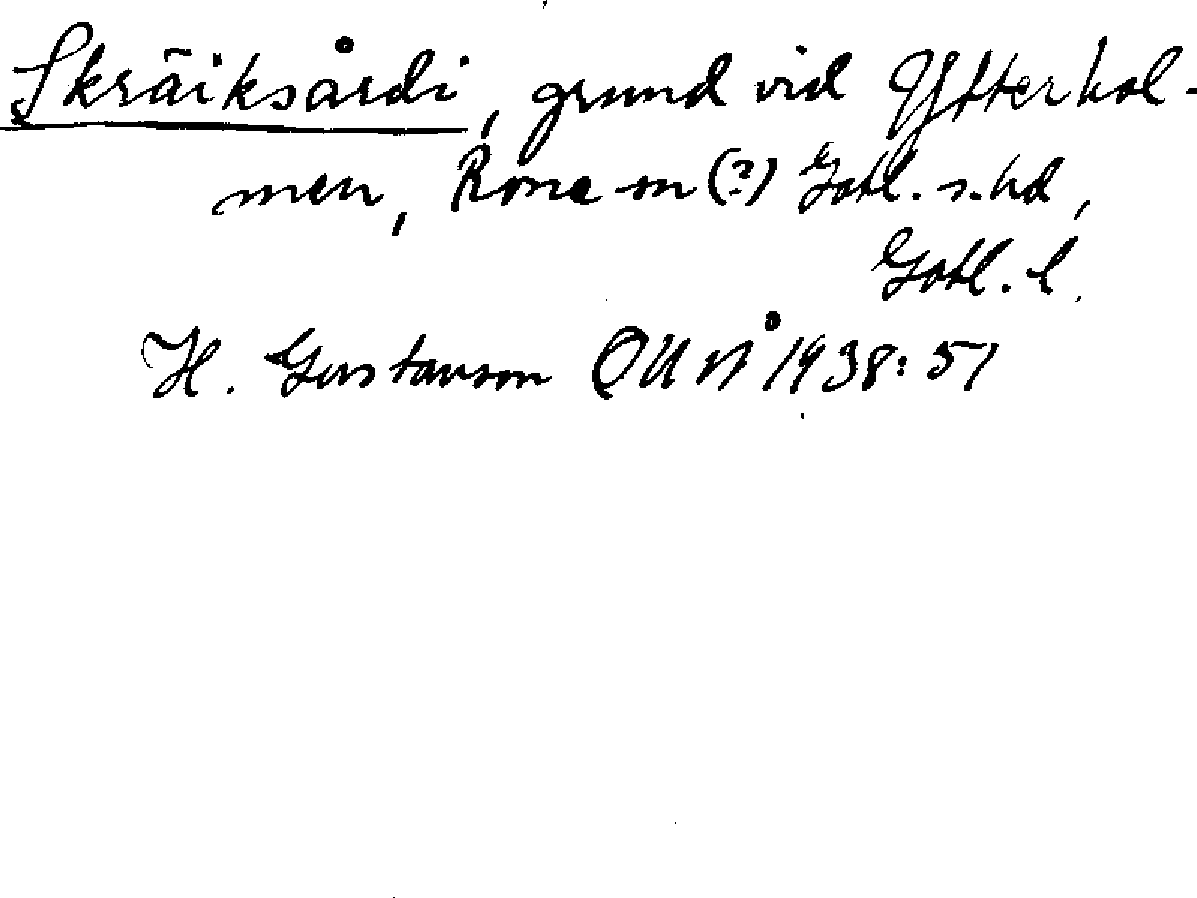 Skräiksårdi, grund vid Ytterhol-
men, Rone sn (?) Gotl. s. hd,
Gotl. l.
H. Gustavson OUÅ 1938: 51